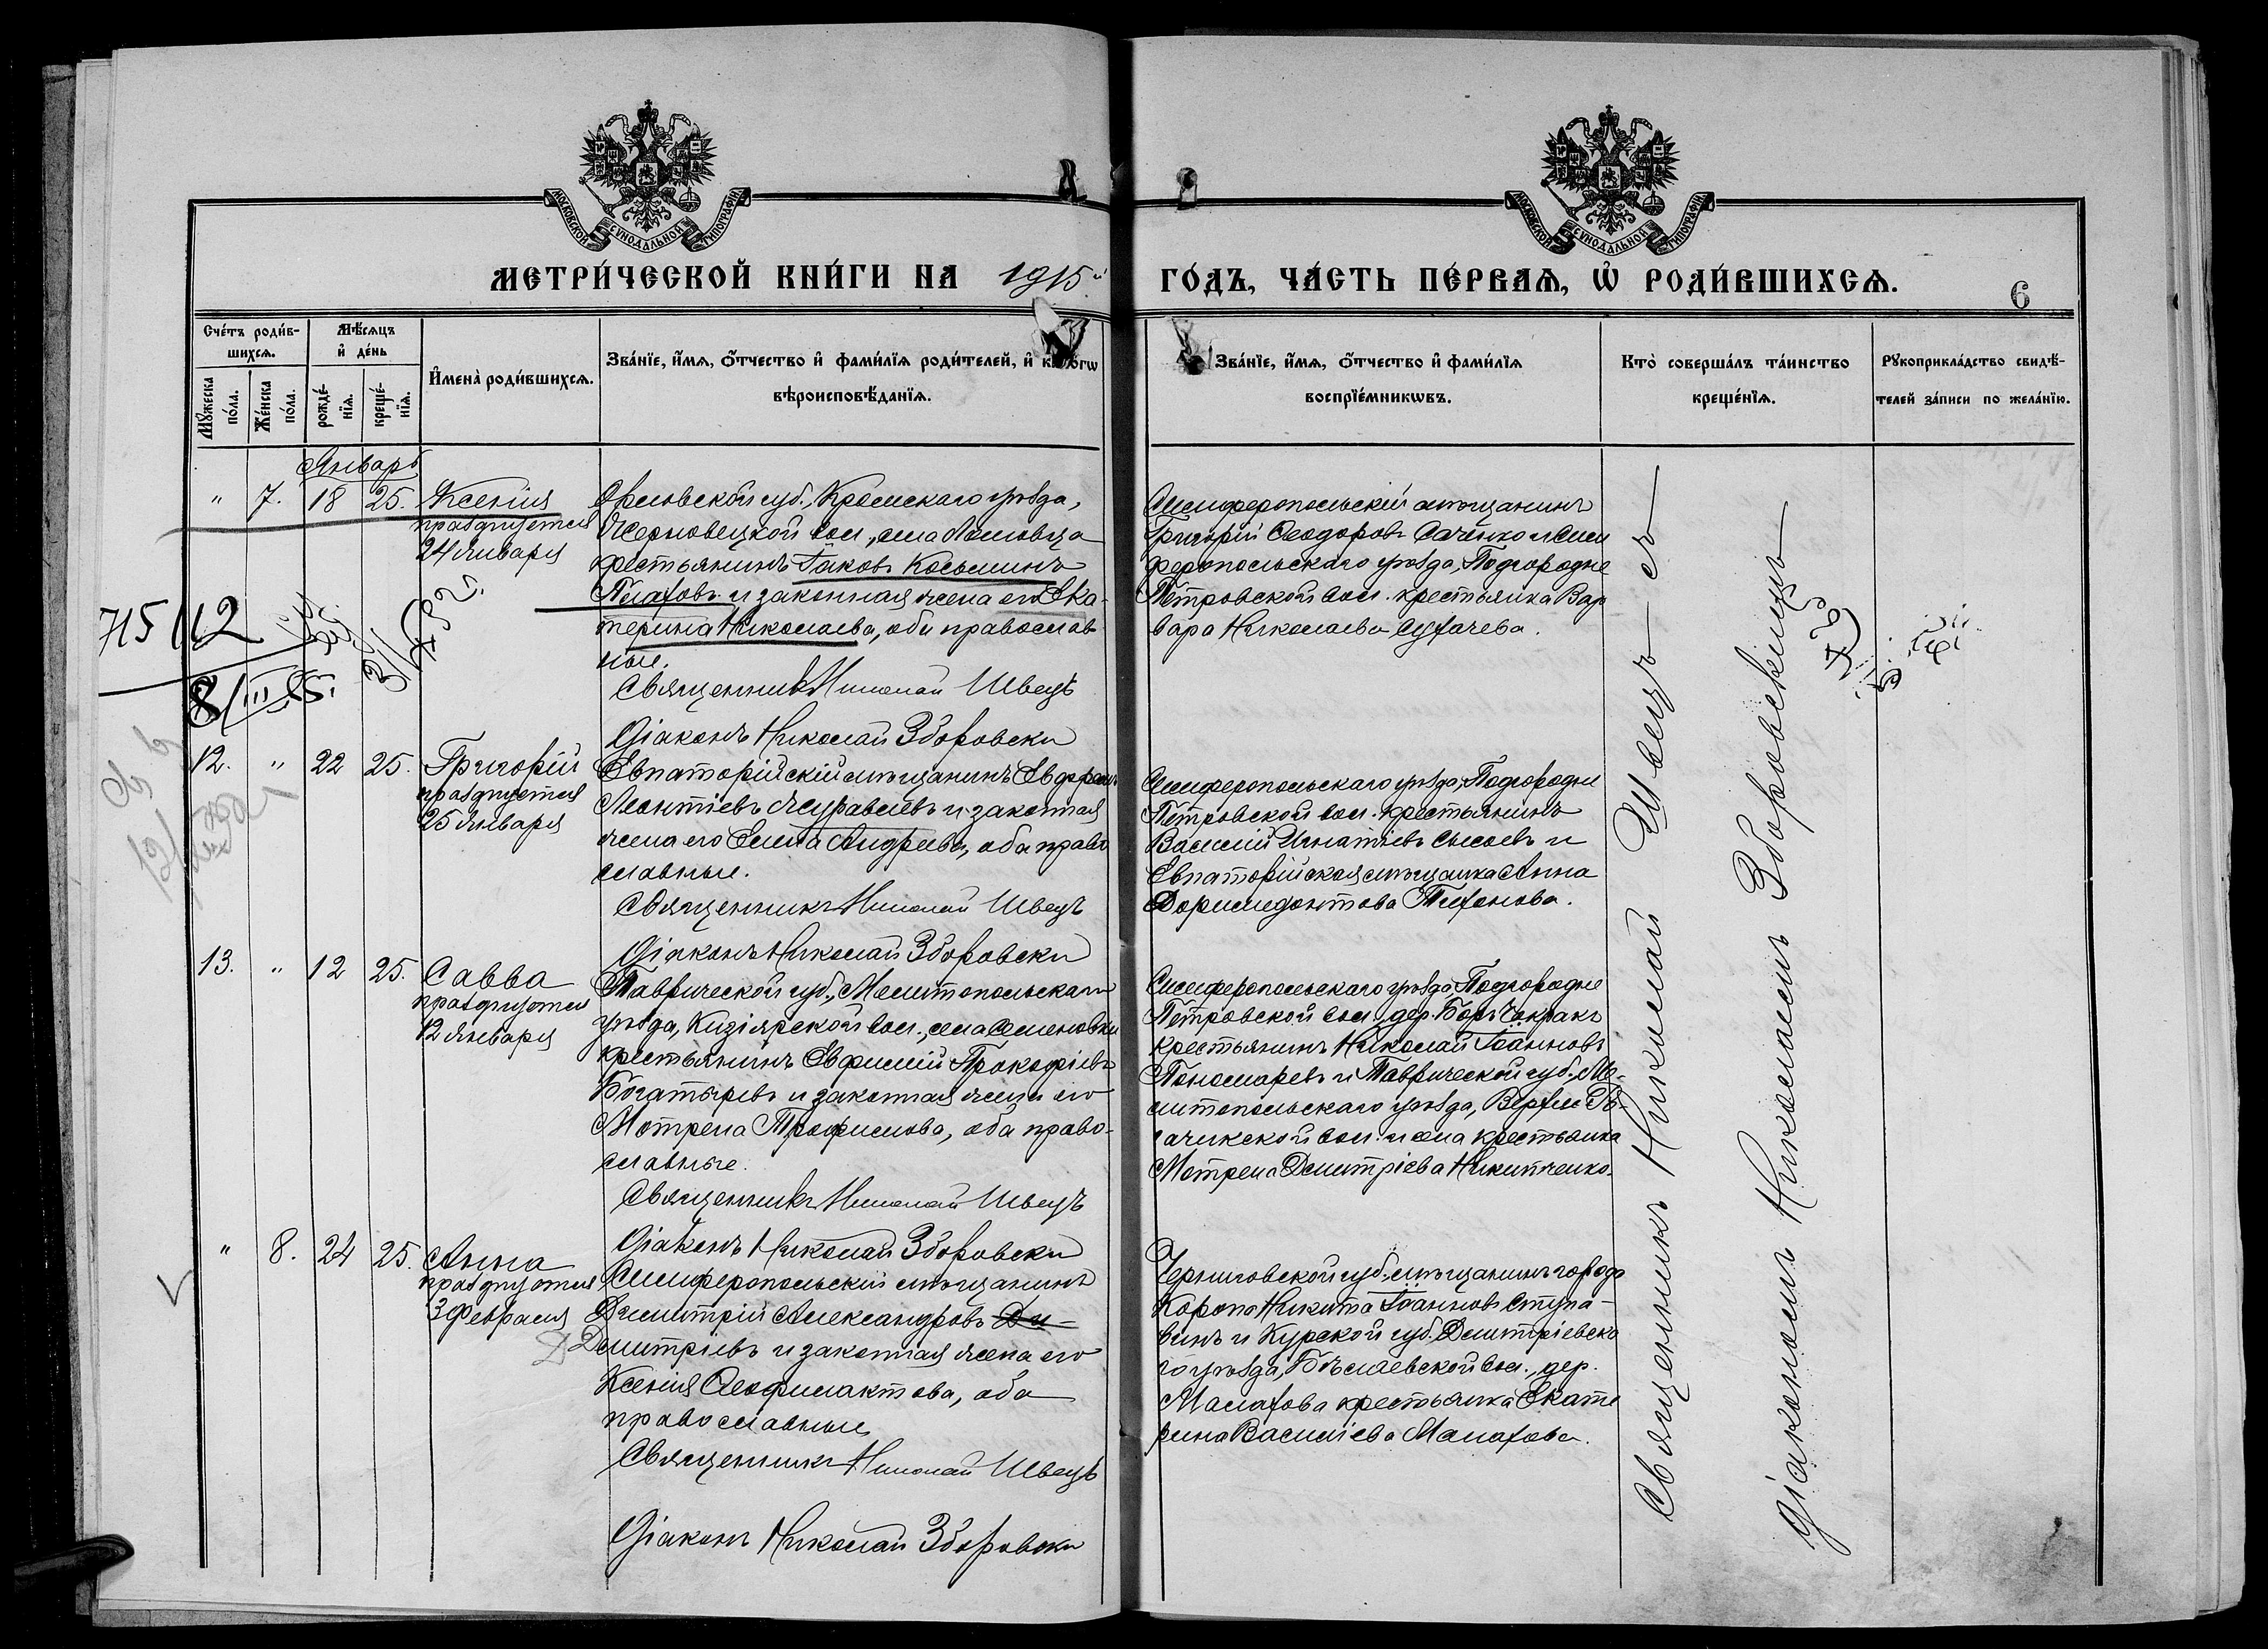 МОСКОВСКОЙ СѴНОДАЛЬНОЙ ТИПОГРАФІИ
МОСКОВСКОЙ СѴНОДАЛЬНОЙ ТИПОГРАФІИ
МЕТРИ́ЧЕСКОЙ КНИ́ГИ НА 1915й
ГО́ДЪ, ЧА́СТЬ ПЕ́РВАѦ, Ѡ҆ РОДИ́ВШИХСѦ.
6
Сче́тъ роди́в-
шихсѧ.
Мѣ́сѧцъ
и҆ де́нь
Мꙋ́жеска
по́ла.
Же́нска
по́ла.
рожде́-
нїѧ.
креще́-
нїѧ.
И҆мена̀ роди́вшихсѧ.
Зва́нїе, и҆́мѧ, ѻ҆́тчество и҆ фами́лїѧ роди́телей, и҆
вѣроисповѣ́данїѧ.
Зва́нїе, и҆́мѧ, ѻ҆́тчество и҆ фами́лїѧ
воспрїе́мникѡвъ.
Кто̀ соверша́лъ та́инство
креще́нїѧ.
Рꙋкоприкла́дство свидѣ́-
телей за́писи по жела́нїю.
Январь
" 7. 18 25. Ксенія
празднуется
24 января
Орловской губ., Кромскаго уѣзда,
Черновецкой вол., села Ломовца
крестьянинъ Іаковъ Косьминъ
и законная жена его Ека-
терина Николаева, оба православ
ные.
Священникъ Николай Швецъ
Діаконъ Николай Зборовски
Симферопольскій мѣщанинъ
Григорій Ѳеодоровъ Саченко и Сим
феропольскаго уѣзда, Подгородне
Петровской вол. крестьянка Вар
вара Николаева Сухачева.
715/12
8/III
12. " 22 25. Григорій
празднуется
25 января
Евпаторійскій мѣщанинъ
Леонтіевъ Журавлевъ и законная
жена его Елена Андреева, оба право
славные.
Священникъ Николай Швецъ
Діаконъ Николай Зборовски
Симферопольскаго уѣзда, Подгородне
Петровской вол. крестьянинъ
Василій Игнатіевъ Сысоевъ и
Евпаторійская мѣщанка Анна
Доримедонтова Тихонова.
13. " 12 25. Савва
празднуется
12 января
Таврической губ., Мелитопольскаго
уѣзда, Кизіярской вол., села Семеновки
крестьянинъ Евфимій Прокофіевъ
Богатыревъ и законная жена его
Мотрена Трофимова, оба право-
славные.
Священникъ Николай Швецъ
Діаконъ Николай Зборовски
Симферопольскаго уѣзда, Подгородне
Петровской вол., дер. Боръ Чокракъ
крестьянинъ Николай Іоанновъ
Пономаревъ и Таврической губ., Ме-
литопольскаго уѣзда, Верхне Ро-
гачикской вол. и села крестьянка
Мотрена Димитріева Никитченко.
" 8. 24 25. Анна
празднуется
3 Февраля
Симферопольскій мѣщанинъ
Димитрій Александровъ Ди-
Димитріевъ и законная жена его
Ксенія Ѳеофилактова, оба
православные
Священникъ Николай Швецъ
Діаконъ Николай Зборовски
Черниговской губ. мѣщанинъ города
Коропа Никита Іоанновъ Ступа-
винъ и Курской губ. Димитріевска
го уѣзда, вол., дер.
Малахова крестьянка Екате
рина Василіева Малахова.
Священникъ Николай Швецъ съ
діакономъ Николаемъ Зборовскимъ